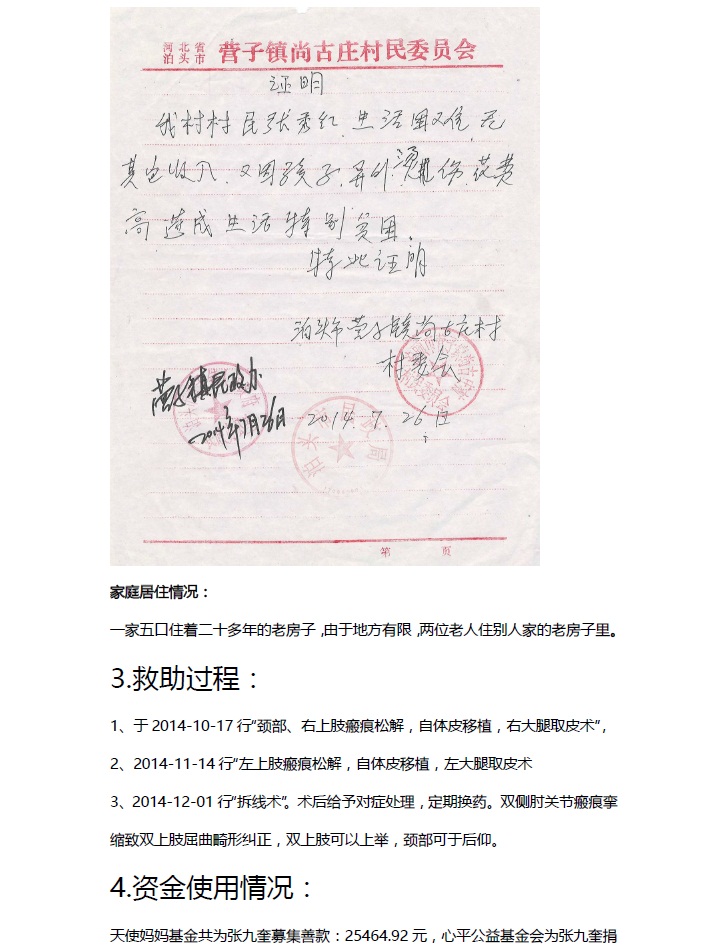 河北省
泊头市 营子镇尚古庄村民委员会
证明
我村村民张秀红,生活困难,无
其它收入,又因孩子,暴外烫伤,花费
高造成生活特别贫困.
特此证明
泊头市营子镇尚古庄村
村委会
营子镇民政办
2014年7月26日
2014.7.26日
第 页
家庭居住情况:
一家五口住着二十多年的老房子,由于地方有限,两位老人住别人家的老房子里。
3.救助过程:
1、于2014-10-17行“颈部、右上肢瘢痕松解,自体皮移植,右大腿取皮术”,
2、2014-11-14行“左上肢瘢痕松解,自体皮移植,左大腿取皮术
3、2014-12-01行“拆线术”。术后给予对症处理,定期换药。双侧肘关节瘢痕挛
缩致双上肢屈曲畸形纠正,双上肢可以上举,颈部可于后仰。
4.资金使用情况:
天使妈妈基金共为张九奎募集善款:25464.92元,心平公益基金会为张九奎捐